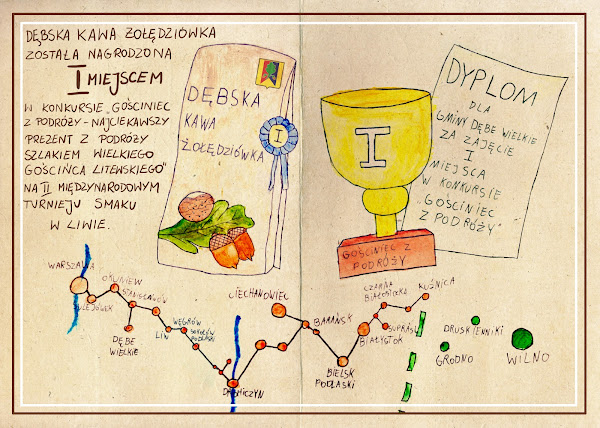 DĘBSKA KAWA ŻOŁĘDZIÓWKA
ZOSTAŁA NAGRODZONA
I MIEJSCEM
W KONKURSIE „GOŚCINIEC
Z PODRÓŻY - NAJCIEKAWSZY
PREZENT Z PODRÓŻY
SZLAKIEM WIELKIEGO
GOŚCIŃCA LITEWSKIEGO"
NA II MIĘDZYNARODOWYM
TURNIEJU SMAKU
W LIWIE.
DĘBSKA
KAWA
ŻOŁĘDZIÓWKA
I
I
GOŚCINIEC Z
PODRÓŻY
DYPLOM
DLA
GMINY DĘBE WIELKIE
ZA ZAJĘCIE
I
MIEJSCA
W KONKURSIE
„GOŚCINIEC
Z PODRÓŻY"
WARSZAWA
SULEJÓWEK
OKUNIEW
STANISŁAWÓW
DĘBE
WIELKIE
LIW
WĘGRÓW
SOKOŁÓW
PODLASKI
DROHICZYN
CIECHANOWIEC
BRAŃSK
BIELSK
PODLASKI
BIAŁYSTOK
SUPRAŚL
CZARNA
BIAŁOSTOCKA
KUŹNICA
GRODNO
DRUSKIENNIKI
WILNO